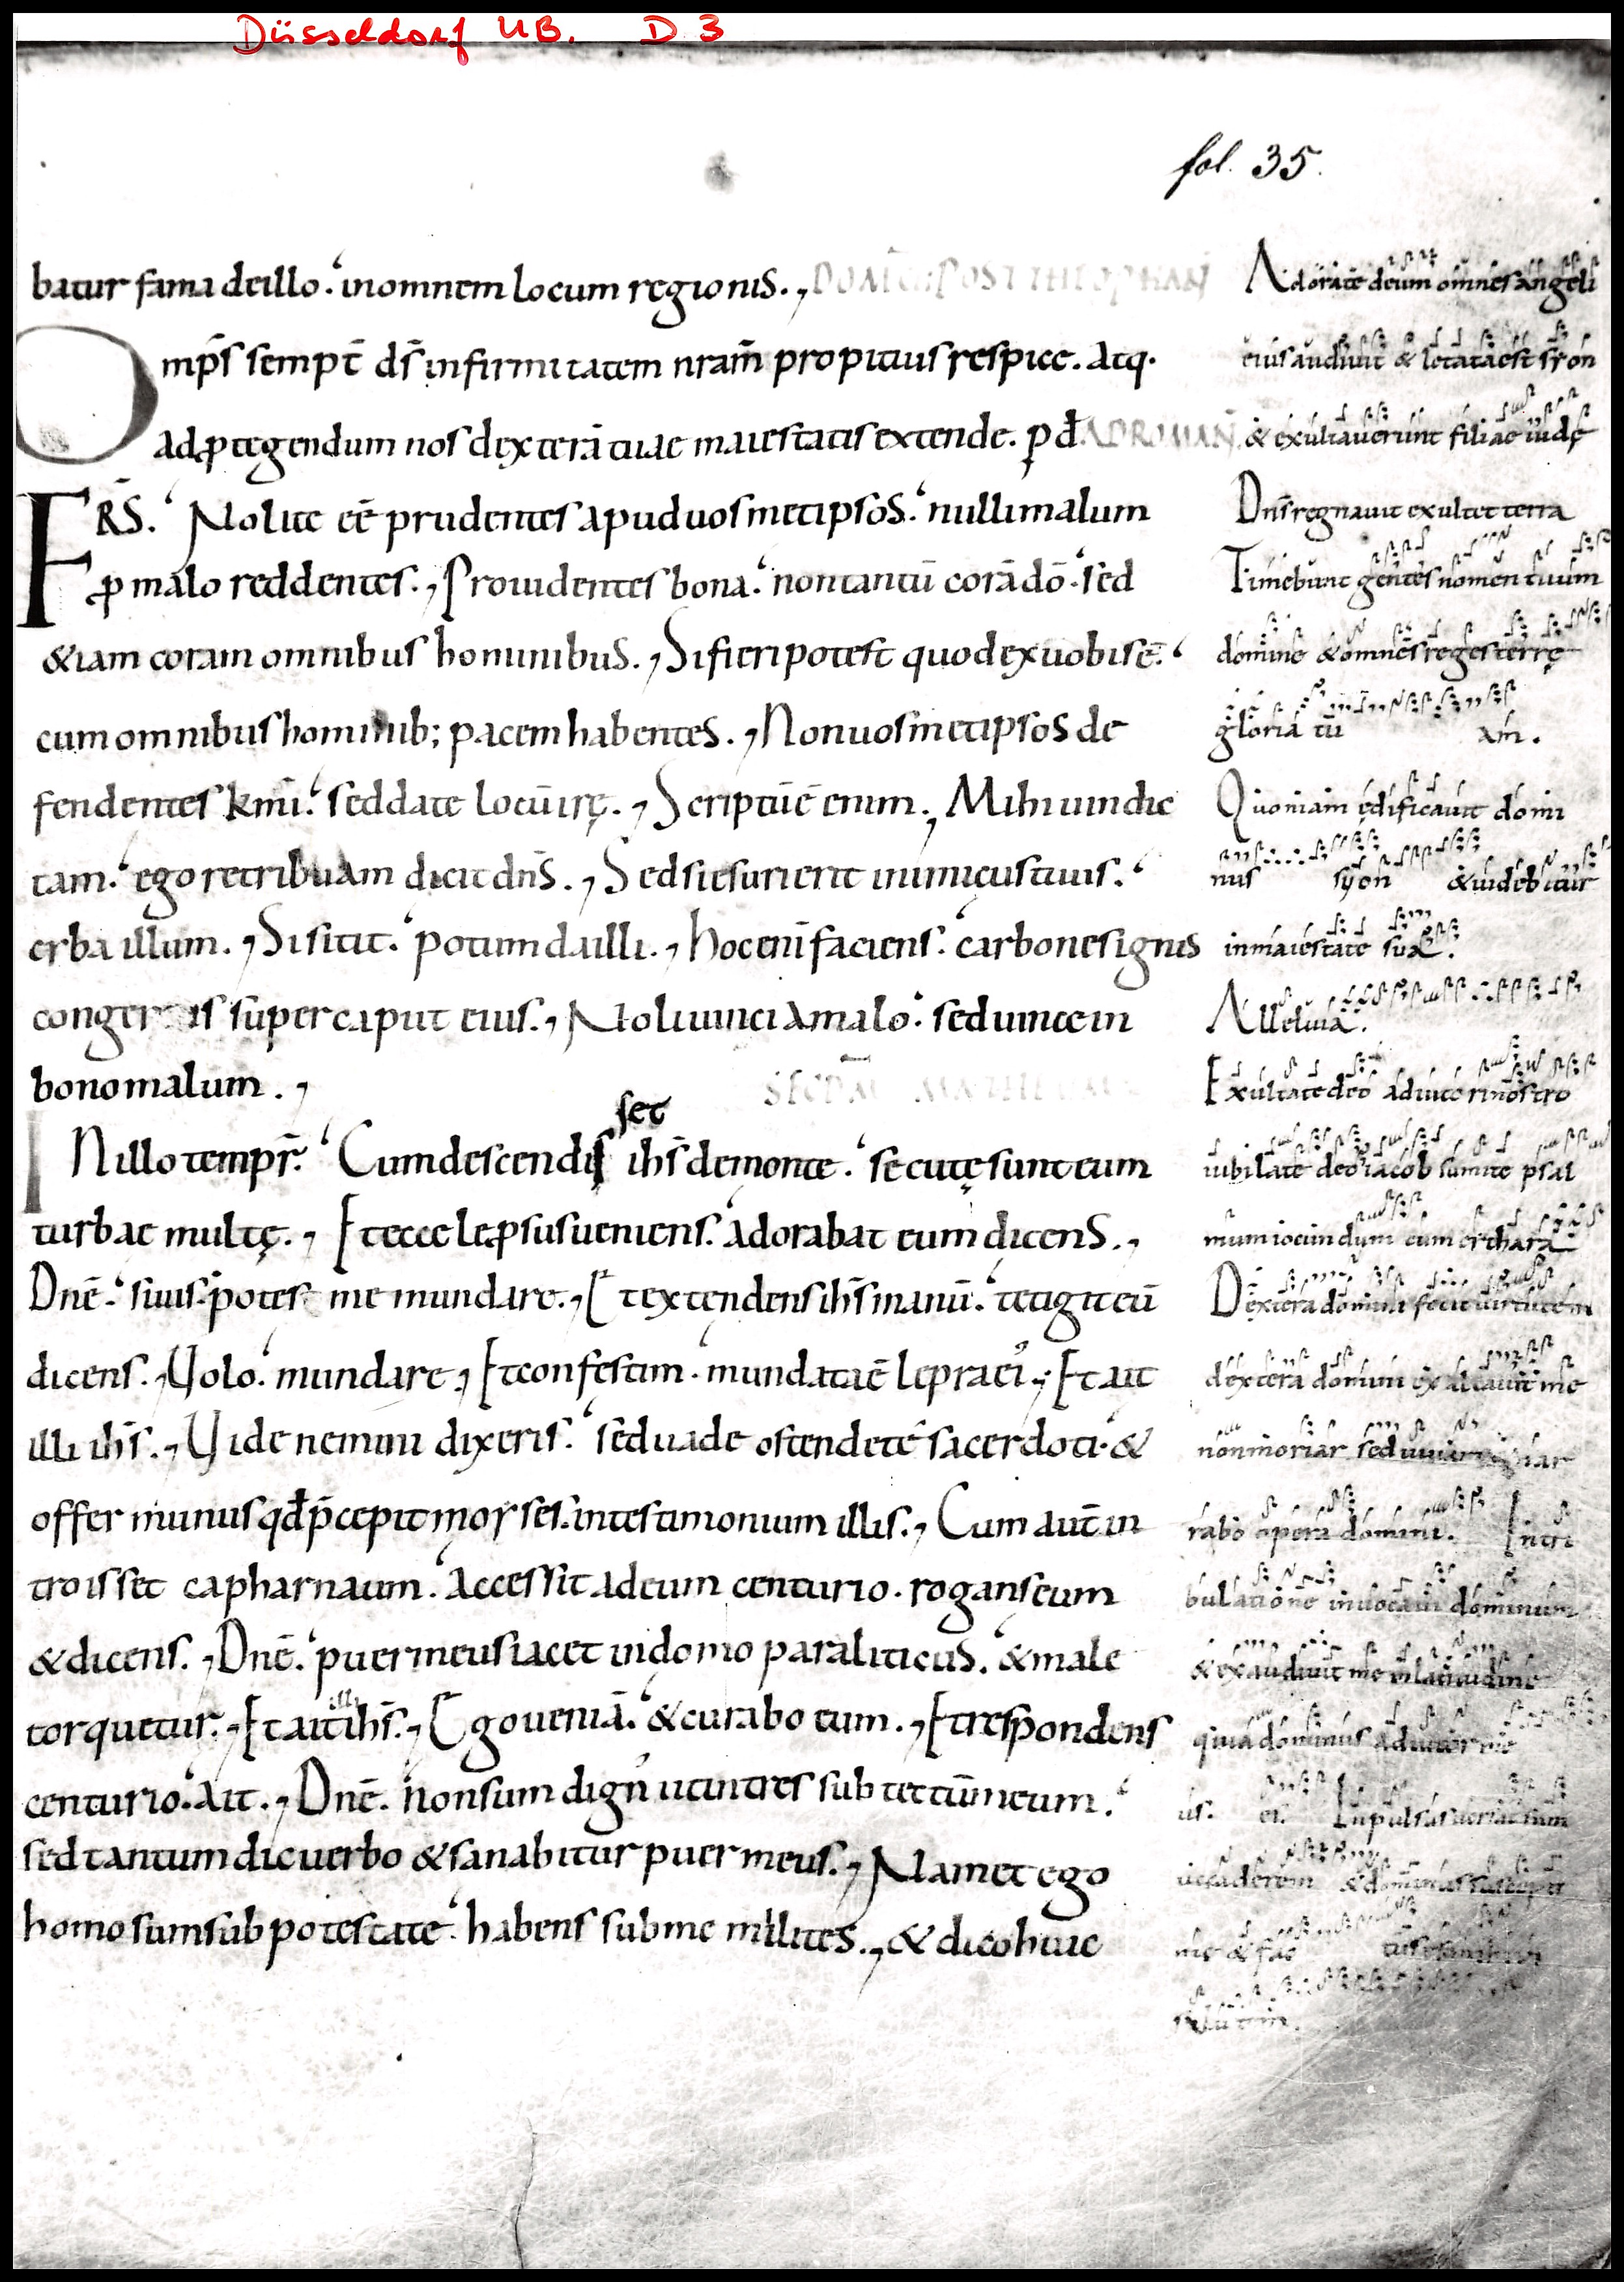 Düsseldorf UB. D 3
fol. 35.
batur fama deillo. inomnem locum regionis.
DOM POST THEOPHAN
Omp̄s semp̄t ds̄ infirmitatem nram̄ propitius respice. atq·
ad p̱tegendum nos dexterā tuae maiestatis extende. p d̄
AD ROMAN
FRS̄. Nolite eē prudentes apuduosmetipsos. nullimalum
p̱ malo reddentes. Prouidentes bona. nontantū corā dō. sed
&iam coram omnibus hominibus. Sifieripotest quodexuobis ē.
cumomnibushominib; pacemhabentes. Nonuosmetipsos de
fendentes kmī. seddate locū irę. Scriptū ē enim. Mihi uindic
tam. ego retribuam dicit dn̄s. Sedsiesurierit inimicustuus.
erba illum. Sisitit. potumdailli. hocenī faciens. carbonesignis
conger is super caput eius. Noliuinci amalo. seduincein
bonomalum.
SECD
set
INillo temp̄r. Cumdescendis ih̄s demonte. secutę sunt eum
turbae multę. Etecce lepsusueniens. adorabat eum dicens.
Dnē. siuis. potes me mundare. Et extendens ih̄s manū. tetigit eū
dicens. Uolo. mundare. Etconfestim. mundata ē lepraei᾽. Et ait
illi ih̄s. Uide nemini dixeris. seduade ostendetē sacerdoti. &
offer munus qd̄ p̄cepit moyses. intestimonium illis. Cum aut̄ in
troisset capharnaum. accessit adeum centurio. roganseum
&dicens. Dnē. puermeusiacet indomo paraliticus. &male
illi
torquetur. Et ait ih̄s. Ego ueniā. &curabo eum. Etrespondens
centurio. ait. Dnē. nonsum dign᾽ utintres sub tectūmeum.
sedtantumdicuerbo &sanabitur puer meus. Nametego
homosumsubpotestate. habens subme milites. &dicohuic
Adorate deum omnes angeli
eius audiuit & letata est syon
& exultauerunt filiae iudę
Dn̄s regnauit exultet terra
Timebunt gentes nomen tuum
domine &omnes reges terrę
gloria tu am.
Quoniam ędificauit domi
nus syon &uidebitur
inmaiestate sua.
Alleluia.
Exultate deo adiutori nostro
iubilate deo iacob sumite psal
mum iocundum cum cithara
Dextera domini fecit uirtutem
dextera domini exaltauit me
non moriar sed uiuam
rabo opera domini. Intri
bulatione inuocaui dominum
&exaudiuit me in latitudine
quia dominus adiutor me
us. Inpulsus uersatus sum
ut caderem & dominus suscepit
me & fac